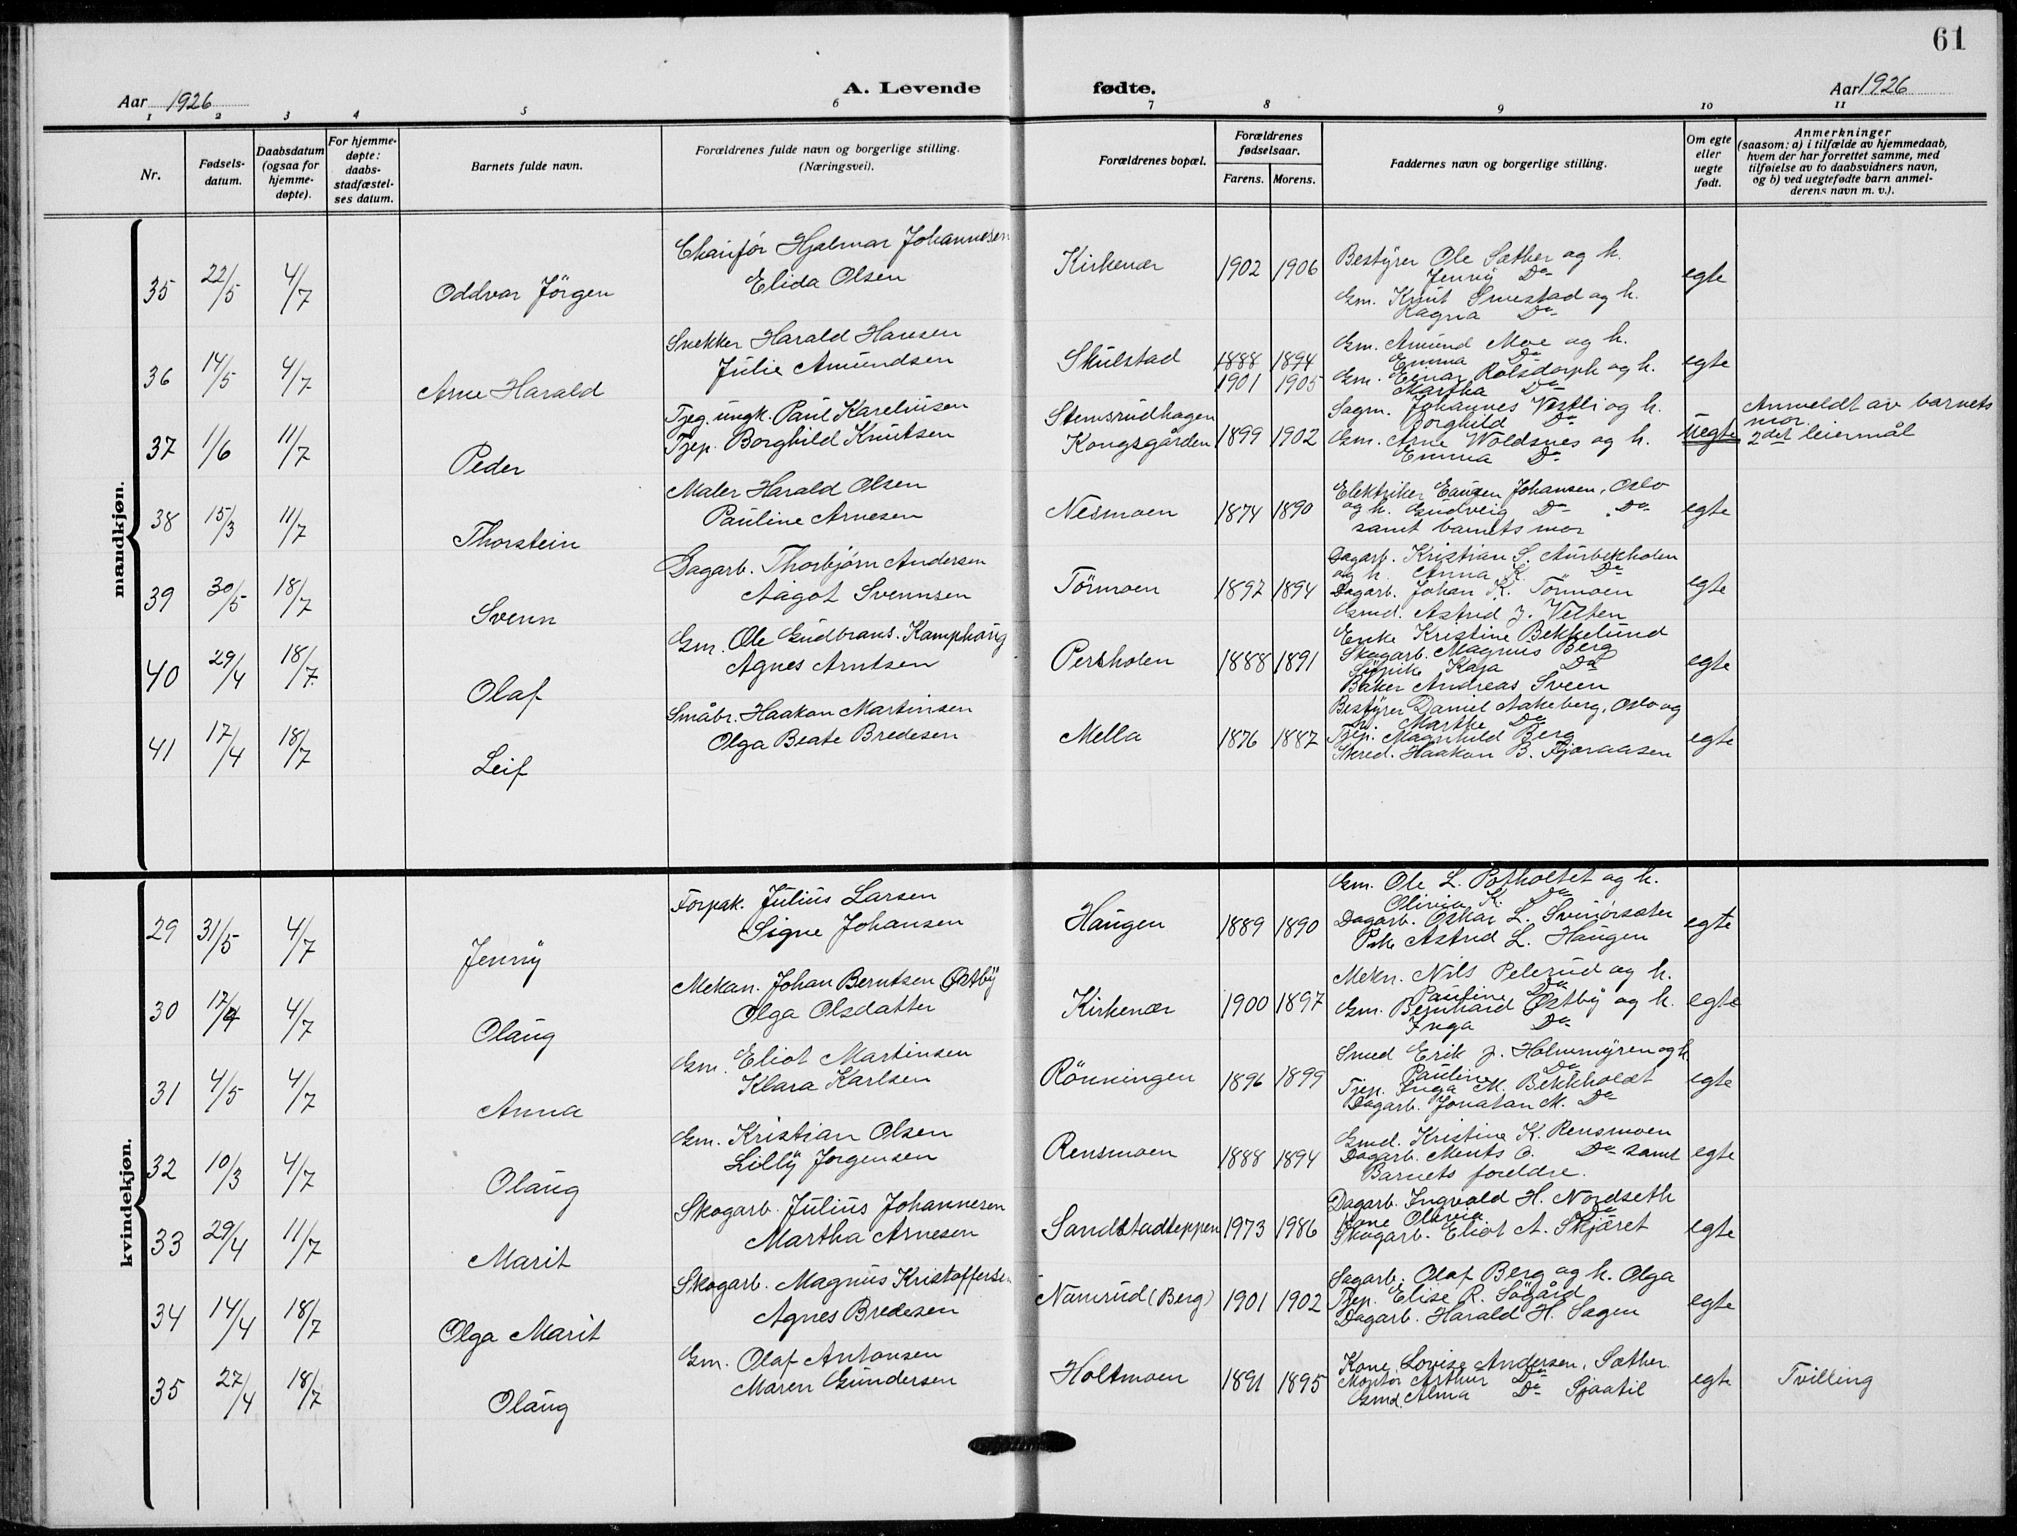 61
Aar 1926
A. Levende
fødte.
Aar 1926
1 2 3 4 5 6 7 8 9 10 11
Nr.
Fødsels-
datum.
Daabsdatum
(ogsaa for
hjemme-
døpte).
For hjemme-
døpte:
daabs-
stadfæstel-
ses datum.
Barnets fulde navn.
Forældrenes fulde navn og borgerlige stilling.
(Næringsvei).
Forældrenes bopæl.
Forældrenes
fødselsaar.
Farens. Morens.
Faddernes navn og borgerlige stilling.
Om egte
eller
uegte
født.
Anmerkninger
(saasom: a) i tilfælde av hjemmedaab,
hvem der har forrettet samme, med
tilføielse av to daabsvidners navn,
og b) ved uegtefødte barn anmel-
derens navn m. v.).
mandkjøn.
35 22/5 4/7 Oddvar Jörgen
Chaufför Hjalmar Johannesen
Elida Olsen
Kirkenær 1902 1906
Bestyrer Ole Sæther og h.
Jenny Do
Gm. Knut Smestad og h.
Ragna Do
egte
36 14/5 4/7 Arne Harald
Snekker Harald Hansen
Julie Amundsen
Skulstad 1888 1894
Gm. Amund Moe og h.
Emma Do
Gm. Einar Rolsdorph og h.
Martha Do
egte
37 1/6 11/7 Peder
Tjeg. ungk. Paul Karelinsen
Tjep. Borghild Knutsen
Stemsrudhagen
Kongsgården
1901 1905
1899 1902
Sagm. Johannes Vestli og h.
Borghild Do
Gm. Arne Woldsnes og h.
Emma Do
uegte
Anmeldt av barnets
mor
2det leiermål
38 15/3 11/7 Thorstein
Maler Harald Olsen
Pauline Arnesen
Nesmoen 1874 1890
Elektriker Eaugen Johansen, Oslo
og h. Gudveig Do Do
samt barnets mor
egte
39 30/5 18/7 Svenn
Dagarb. Thorbjørn Andersen
Aagot Svennsen
Törmoen 1892 1894
Dagarb. Kristian S. Aurbekholen
og h. Anna K. Do
Dagarb. Johan K. Törmoen
Gmd. Astrid J. Velten
egte
40 29/4 18/7 Olaf
Gm. Ole Gudbrans. Kamphaug
Agnes Arntsen
Persholen 1888 1891
Enke Kristine Bekkelund
Skogarb. Magnus Berg
Kaja Do
Baker Andreas Sveen
egte
41 17/4 18/7 Leif
Småbr. Haakon Martinsen
Olga Beate Bredesen
Mella 1876 1887
Bestyrer Daniel Aakeberg, Oslo og
h. Marthe Do
Tjep. Magnhild Berg
Haakon B. Fjæraasen
egte
kvindekjøn.
29 31/5 4/7 Jenny
Forpak. Julius Larsen
Signe Johansen
Haugen 1889 1890
Gm. Ole L. Potholtet og h.
Olivia K. Do
Dagarb. Oskar L. Svinörsæter
Pike Astrid L. Haugen
egte
30 17/4 4/7 Olaug
Mekan. Johan Berntsen Østby
Olga Olsdatter
Kirkenær 1900 1897
Mekn. Nils Pelerud og h.
Pauline Do
Gm. Bernhard Østby og h.
Inga Do
egte
31 4/5 4/7 Anna
Gm. Eliot Martinsen
Klara Karlsen
Rönningen 1896 1899
Smed Erik J. Holmmyren og h
Pauline Do
Tjep. Inga M. Bekkholdt
Dagarb. Jonatan M. Do
egte
32 10/3 4/7 Olaug
Gm. Kristian Olsen
Lilly Jorgensen
Rensmoen 1888 1894
Gmd. Kristine K. Rensmoen
Dagarb. Ments O. Do samt
Barnets foreldre.
egte
33 29/4 11/7 Marit
Skogarb. Julius Johannesen
Martha Arnesen
Sandstadteppen 1973 1986
Dagarb. Ingvald H. Nordseth
Kone Olivia Do
Skogarb. Eliot A. Skjæret
egte
34 14/4 18/7 Olga Marit
Skogarb. Magnus Kristoffersen
Agnes Bredesen
Namrud (Berg) 1901 1902
Sagarb. Olaf Berg og h. Olga
Tjep. Elise R. Sögård
Dagarb. Harald H. Sagen
egte
35 27/4 18/7 Olaug
Gm. Olaf Antonsen
Maren Gundersen
Holtmoen 1891 1895
Kone Lovise Andersen, Sæther
Montör Arthur Do
Gmd. Alma Do Sjaatil
egte
Tvilling